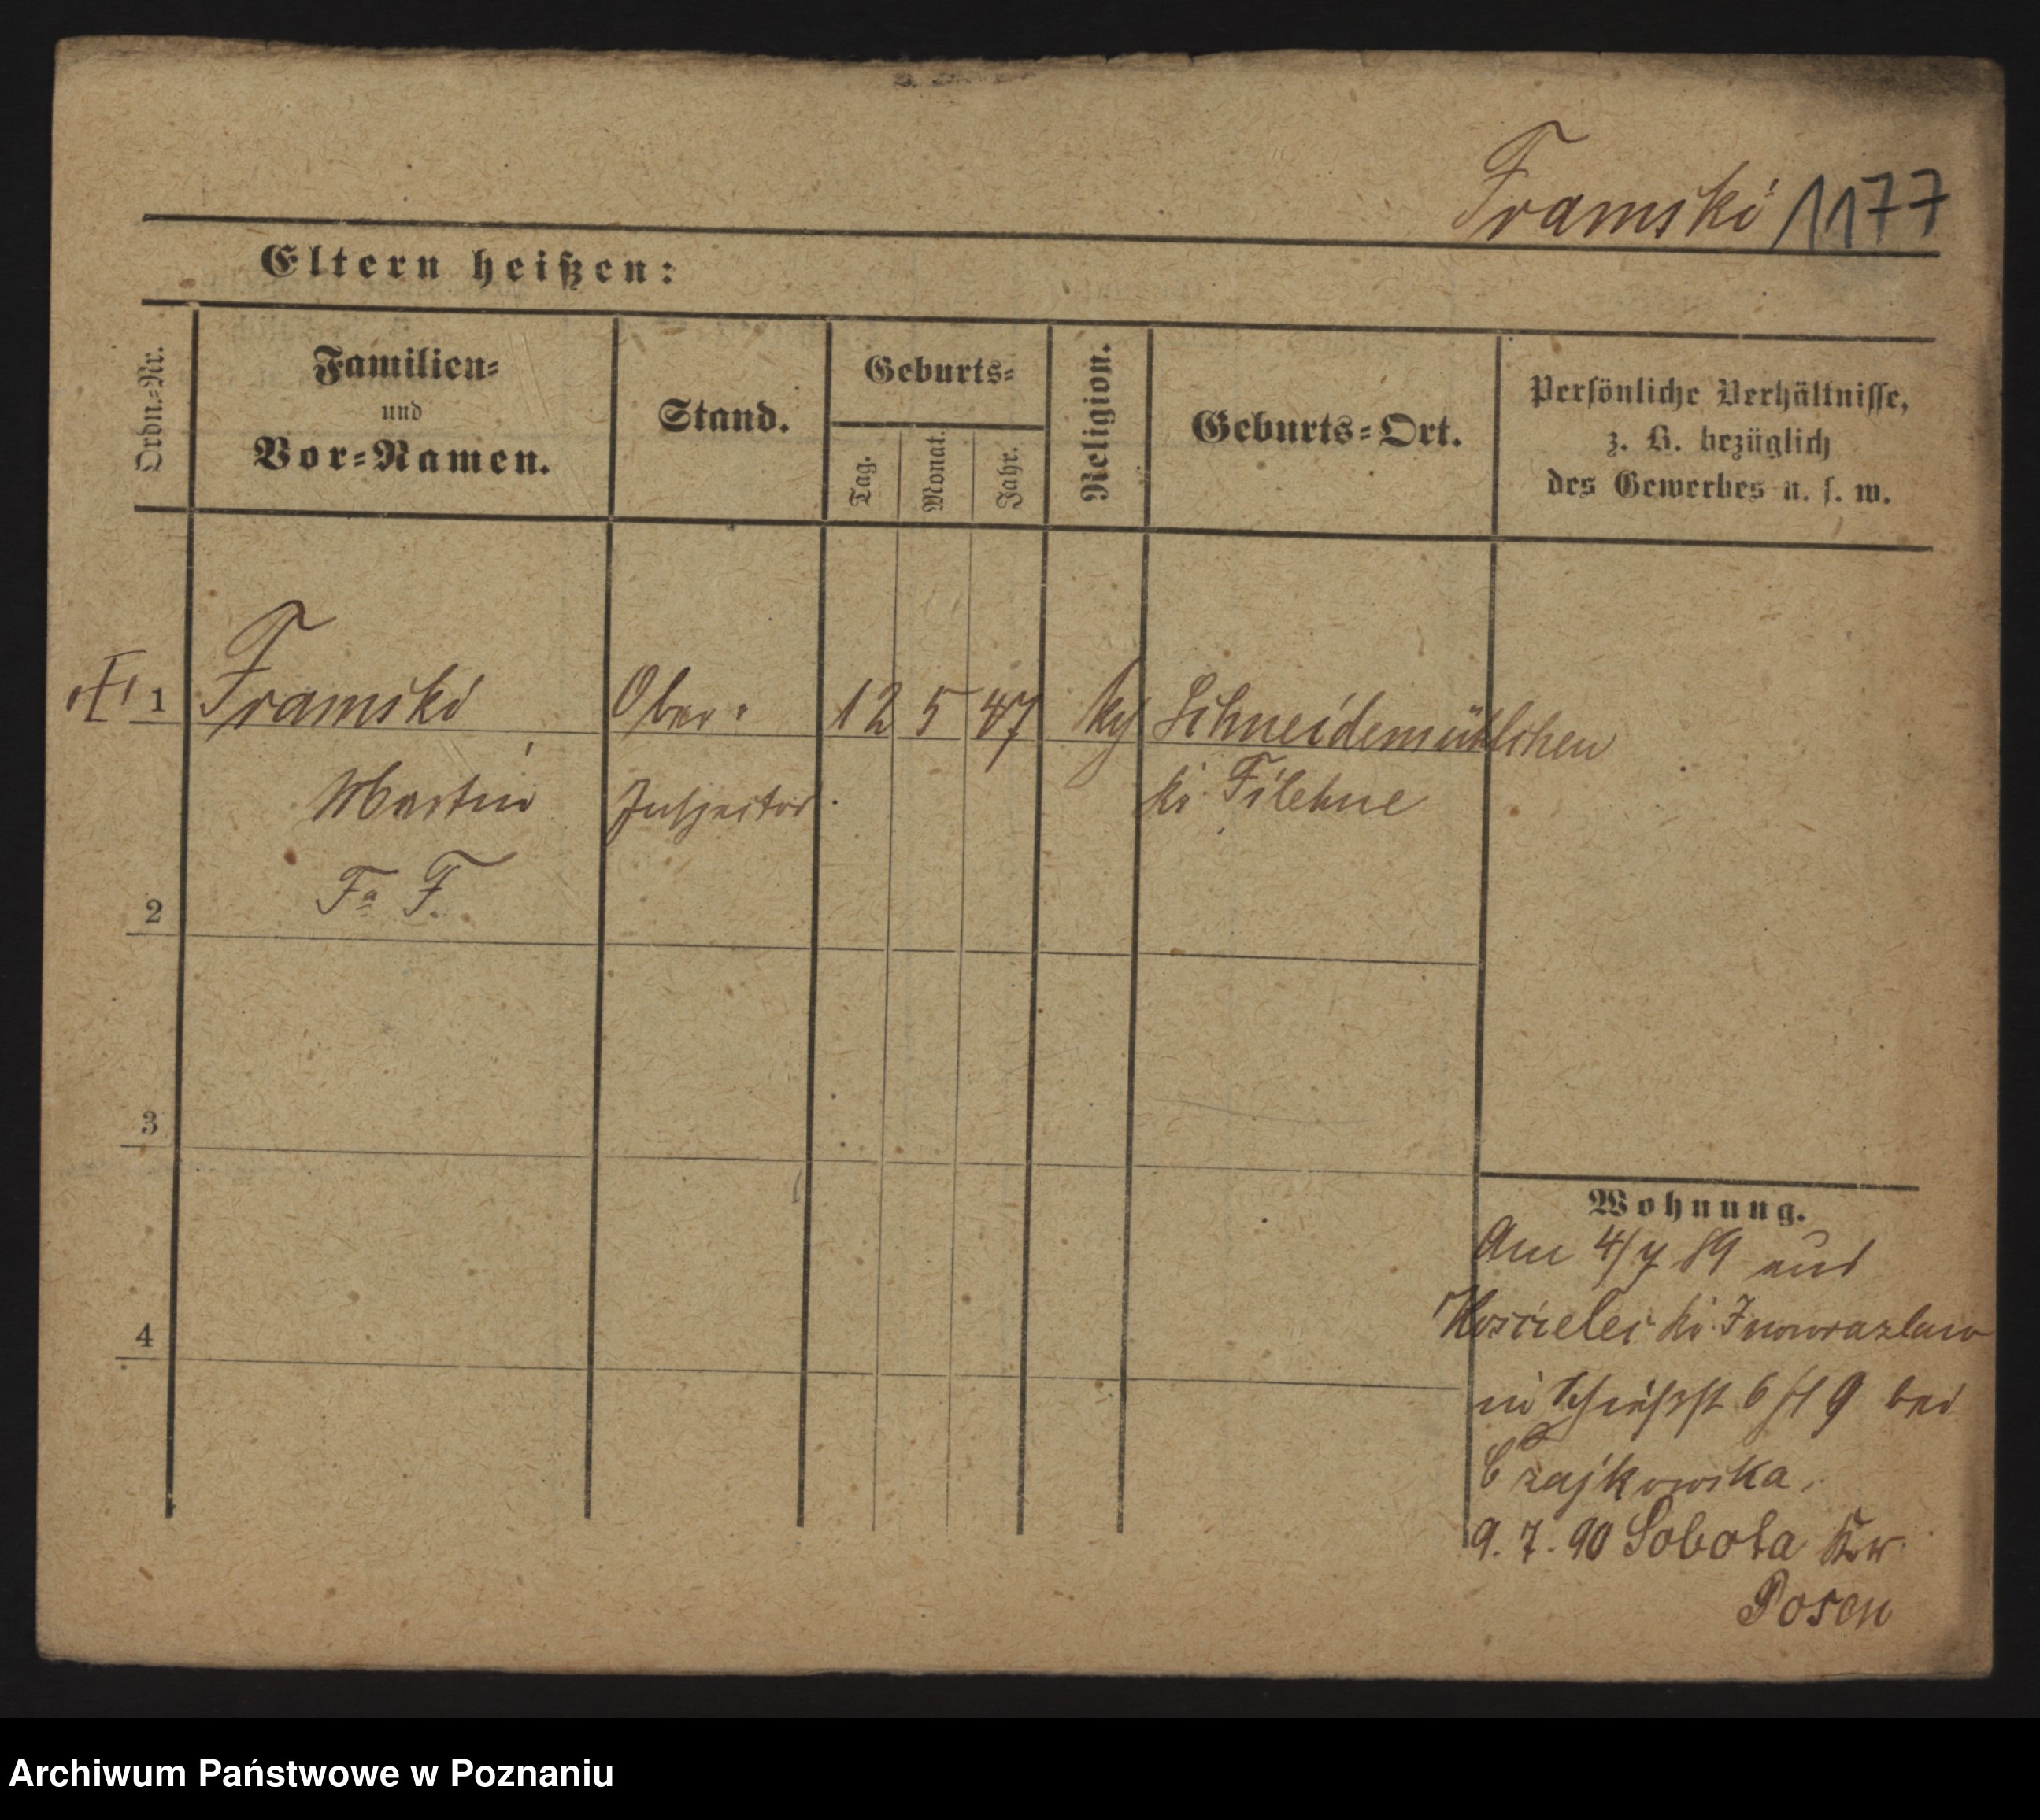 Framski 1177
Eltern heißen:
Ordn.-Nr.
Familien-
und
Vor-Namen.
Stand.
Geburts-
Tag.
Monat.
Jahr.
Religion.
Geburts-Ort.
Persönliche Verhältnisse,
z. B. bezüglich
des Gewerbes u. s. w.
1 Framski Ober- 12 5 47 Schneidemühlchen
Martin Inspector. Kr. Filehne
2 F.
3
4
Wohnung.
Am 4/7 89 aus
Koscielec Kr. Inowrazlaw
in 6 9 bei
Czajkowska.
9. 7. 90 Sobota
Posen
Archiwum Państwowe w Poznaniu